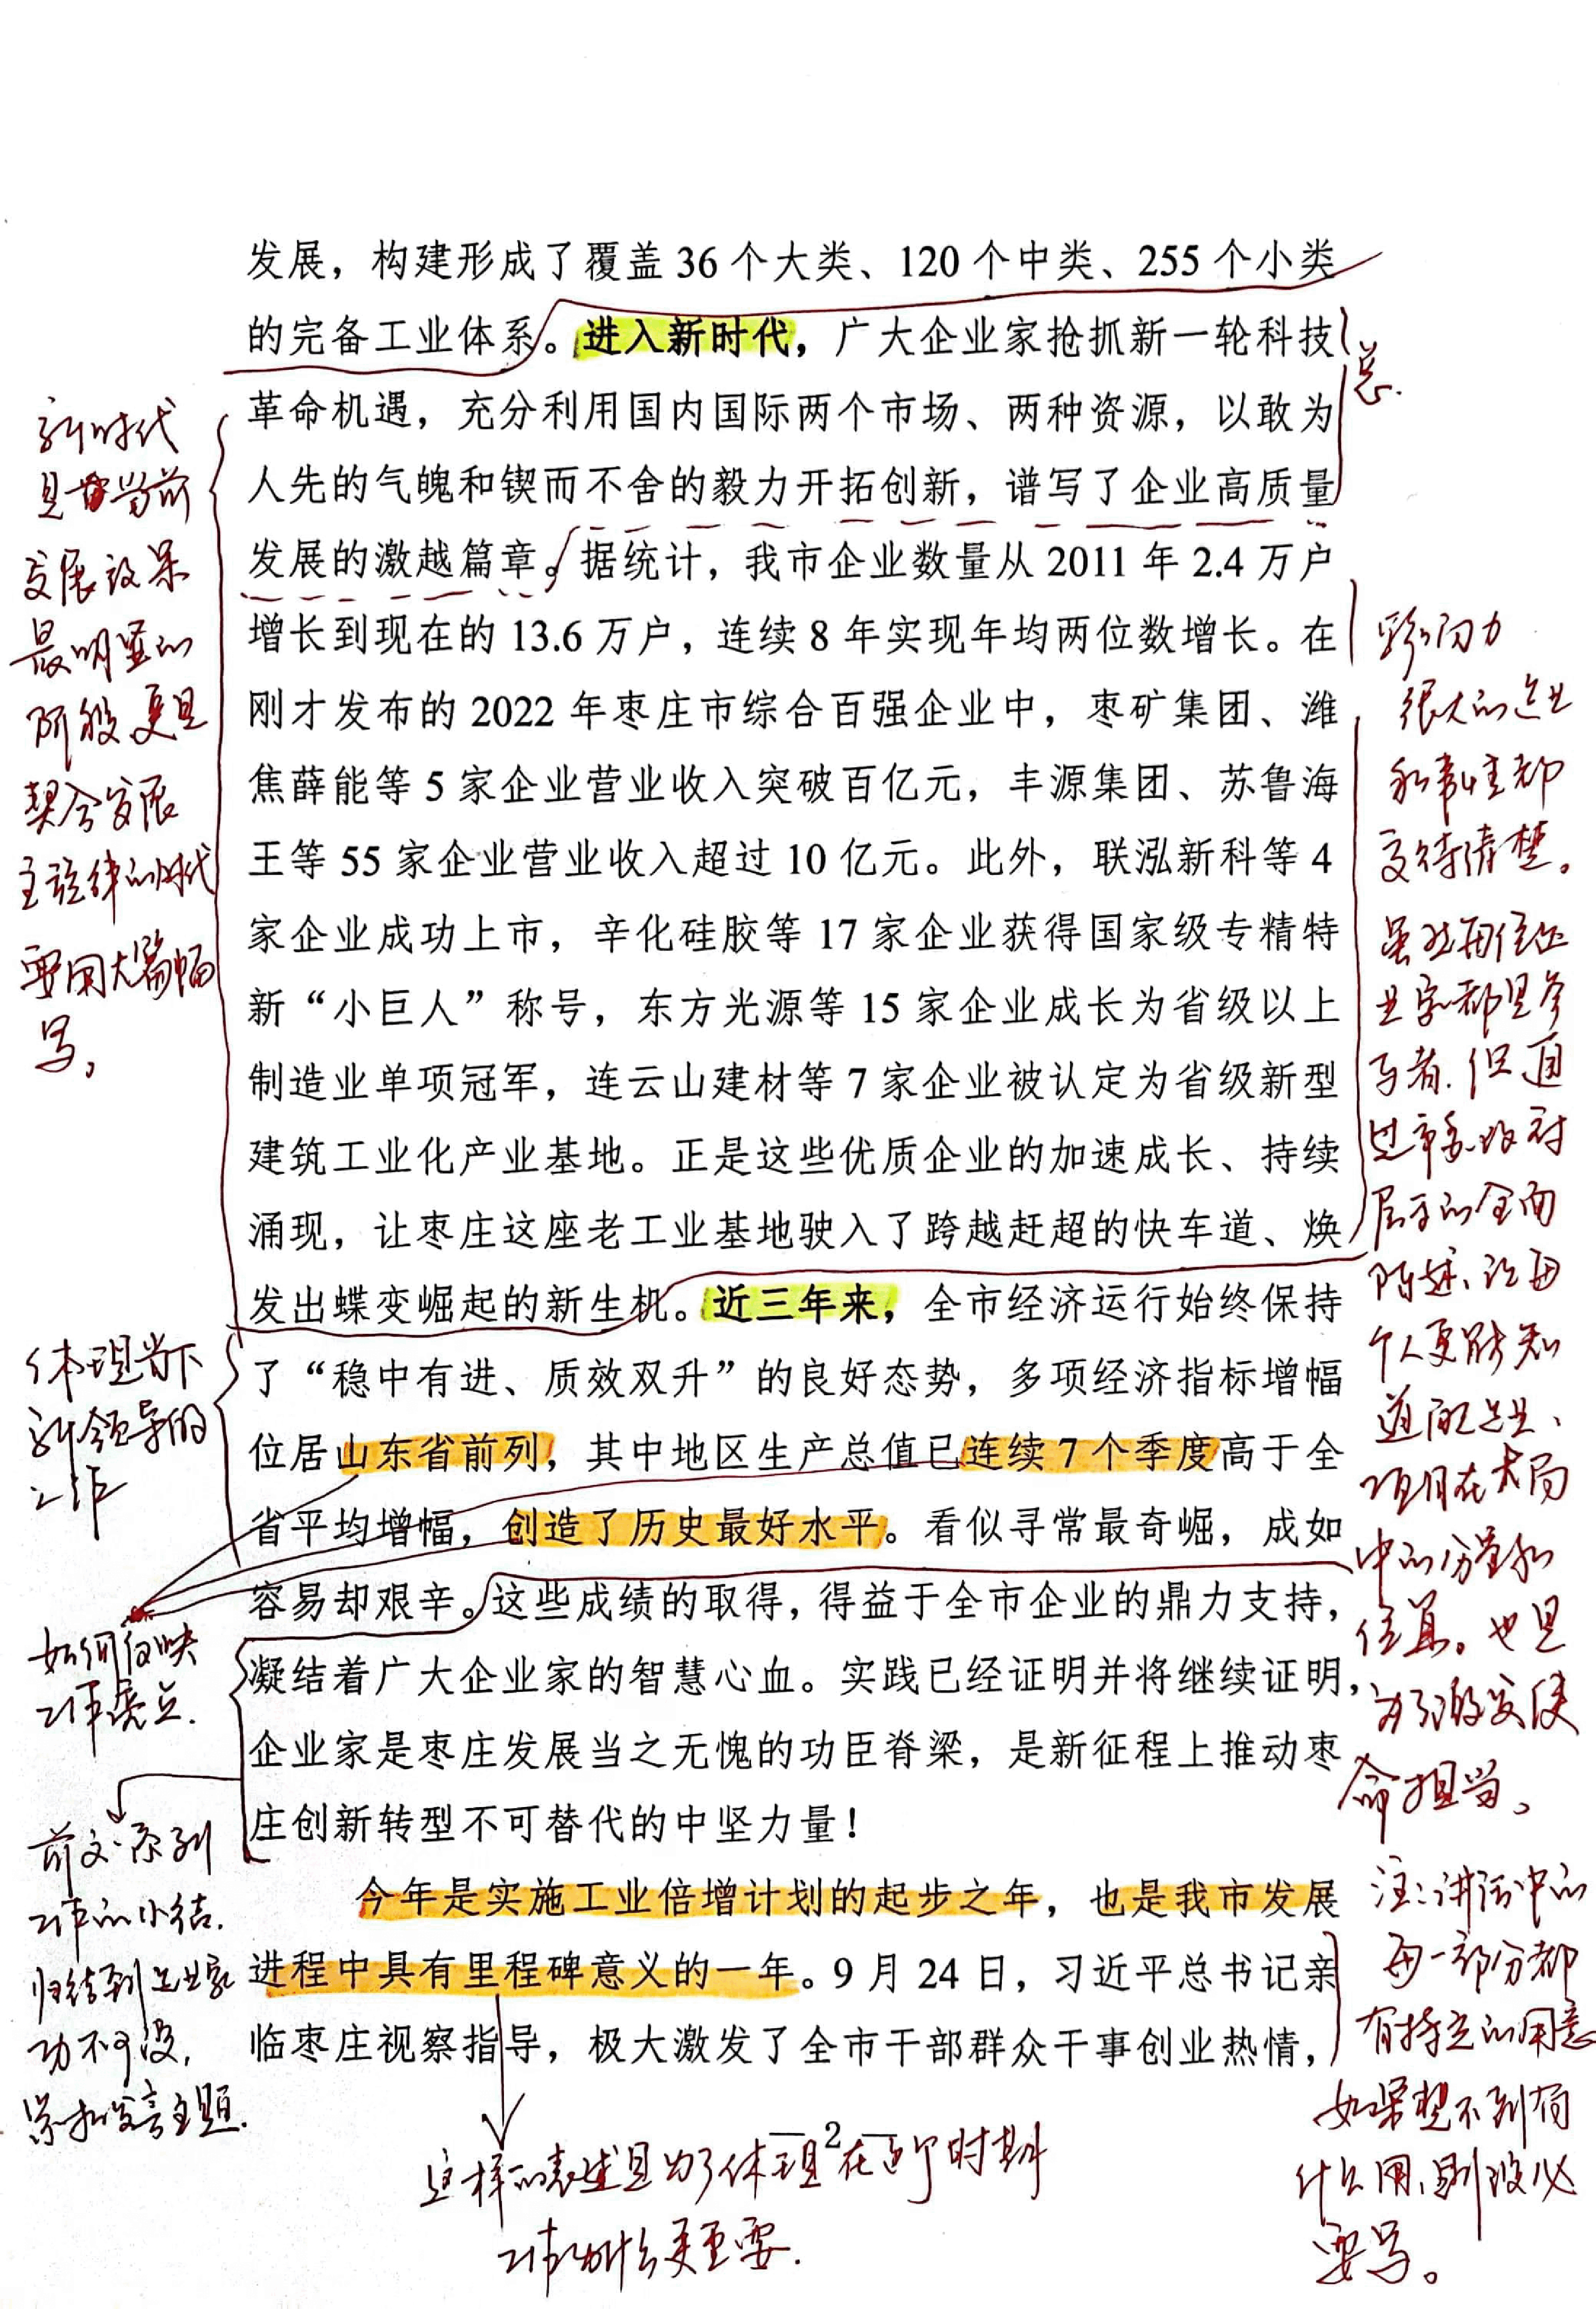 发展，构建形成了覆盖 36 个大类、120 个中类、255 个小类
的完备工业体系。进入新时代，广大企业家抢抓新一轮科技
革命机遇，充分利用国内国际两个市场、两种资源，以敢为
人先的气魄和锲而不舍的毅力开拓创新，谱写了企业高质量
发展的激越篇章。据统计，我市企业数量从 2011 年 2.4 万户
增长到现在的 13.6 万户，连续 8 年实现年均两位数增长。在
刚才发布的 2022 年枣庄市综合百强企业中，枣矿集团、潍
焦薛能等 5 家企业营业收入突破百亿元，丰源集团、苏鲁海
王等 55 家企业营业收入超过 10 亿元。此外，联泓新科等 4
家企业成功上市，辛化硅胶等 17 家企业获得国家级专精特
新“小巨人”称号，东方光源等 15 家企业成长为省级以上
制造业单项冠军，连云山建材等 7 家企业被认定为省级新型
建筑工业化产业基地。正是这些优质企业的加速成长、持续
涌现，让枣庄这座老工业基地驶入了跨越赶超的快车道、焕
发出蝶变崛起的新生机。近三年来，全市经济运行始终保持
了“稳中有进、质效双升”的良好态势，多项经济指标增幅
位居山东省前列，其中地区生产总值已连续 7 个季度高于全
省平均增幅，创造了历史最好水平。看似寻常最奇崛，成如
容易却艰辛。这些成绩的取得，得益于全市企业的鼎力支持，
凝结着广大企业家的智慧心血。实践已经证明并将继续证明，
企业家是枣庄发展当之无愧的功臣脊梁，是新征程上推动枣
庄创新转型不可替代的中坚力量！
今年是实施工业倍增计划的起步之年，也是我市发展
进程中具有里程碑意义的一年。9 月 24 日，习近平总书记亲
临枣庄视察指导，极大激发了全市干部群众干事创业热情，
2
新时代
是当前
发展效果
最明显的
阶段，更是
契合发展
主旋律的时代
要用大篇幅
写。
体现当下
新领导的
工作
如何反映
工作亮点.
前文一系列
工作的小结.
归结到企业家
功不可没,
紧扣发言主题.
总.
影响力
很大的企业
和事情都
交待清楚。
虽然每位企
业家都是参
与者.但通
过市委政府
层面的全面
陈述、让每
个人更能知
道企业、
项目在大局
中的分量和
位置。也是
为了激发使
命担当。
注:讲话中的
每一部分都
有特定的用意
如果想不到有
什么用、则没必
要写。
这样的表述是为了体现在这个时期
工作为什么更重要.